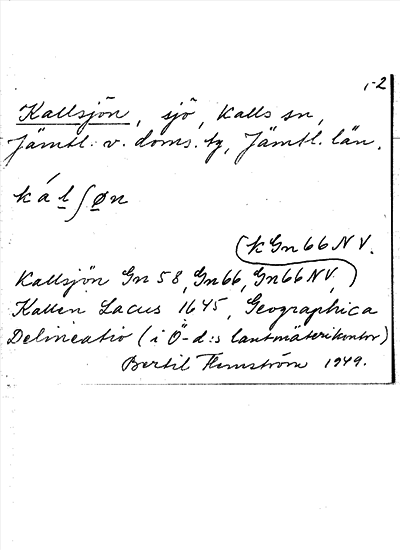 1-2
Kallsjön, sjö, Kalls sn,
Jämtl. v. doms. tg, Jämtl. län.
kálʃøn
(k Gn 66 NV.
Kallsjön Gn 58, Gn 66, Gn 66 NV,)
Kallen Lacus 1645, Geographica
Delineatio (i Ö-d:s lantmäterikontor)
Bertil Flemström 1949.